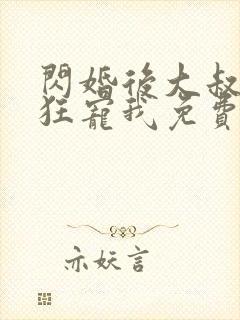 閃婚後大叔
狂寵我免費
亦妖言